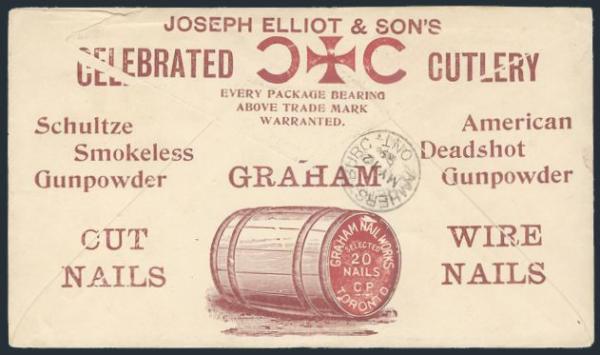 JOSEPH ELLIOT & SON'S
CELEBRATED C✠C CUTLERY
EVERY PACKAGE BEARING
ABOVE TRADE MARK
WARRANTED.
Schultze
Smokeless
Gunpowder
American
Deadshot
Gunpowder
GRAHAM
CUT
NAILS
GRAHAM NAIL WORKS
SELECTED
20
NAILS
C.P.
TORONTO
WIRE
NAILS
ONT
MY 12